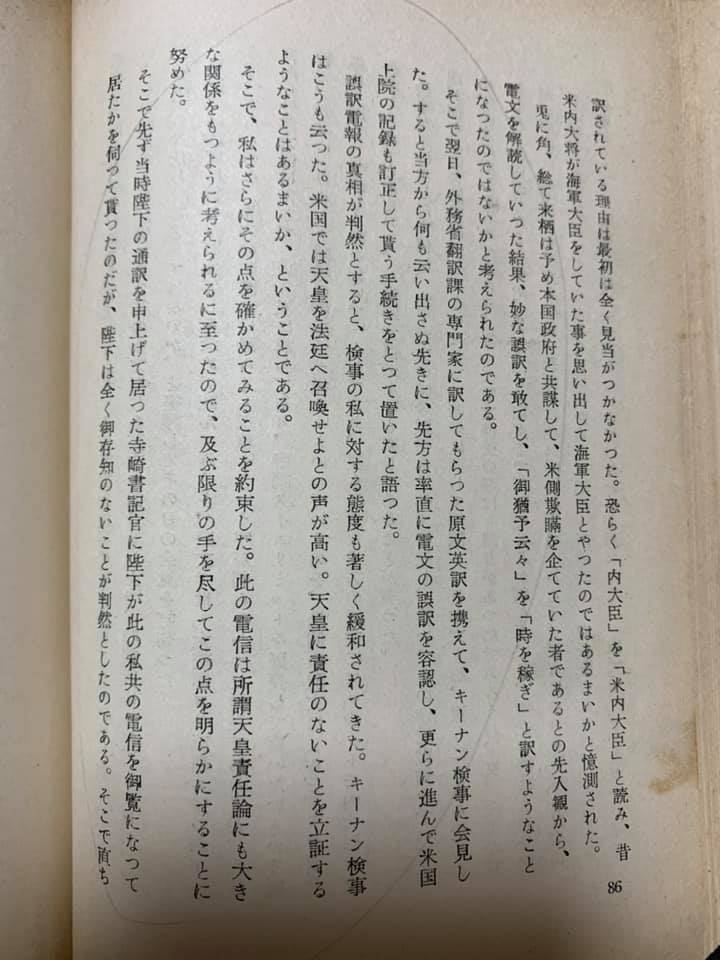 訳されている理由は最初は全く見当がつかなかつた。恐らく「内大臣」を「米内大臣」と読み、昔
米内大将が海軍大臣をしていた事を思い出して海軍大臣とやつたのではあるまいかと憶測された。
兎に角、総て来栖は予め本国政府と共謀して、米側欺瞞を企てていた者であるとの先入観から、
電文を解読していつた結果、妙な誤訳を敢てし、「御猶予云々」を「時を稼ぎ」と訳すようなこと
になつたのではないかと考えられたのである。
そこで翌日、外務省翻訳課の専門家に訳してもらつた原文英訳を携えて、キーナン検事に会見し
た。すると当方から何も云い出さぬ先きに、先方は率直に電文の誤訳を容認し、更らに進んで米国
上院の記録も訂正して貰う手続きをとつて置いたと語つた。
誤訳電報の真相が判然とすると、検事の私に対する態度も著しく緩和されてきた。キーナン検事
はこうも云つた。米国では天皇を法廷へ召喚せよとの声が高い。天皇に責任のないことを立証する
ようなことはあるまいか、ということである。
そこで、私はさらにその点を確かめてみることを約束した。此の電信は所謂天皇責任論にも大き
な関係をもつように考えられるに至つたので、及ぶ限りの手を尽してこの点を明らかにすることに
努めた。
そこで先ず当時陛下の通訳を申上げて居つた寺崎書記官に陛下が此の私共の電信を御覧になつて
居たかを伺つて貰つたのだが、陛下は全く御存知のないことが判然としたのである。そこで直ち
86